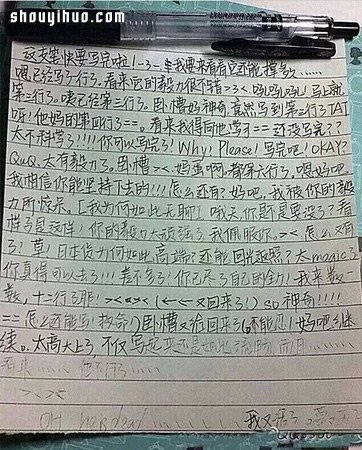 shouyihuo.com
这支笔快要写完啦!~3~ 来我要来看看它还能撑多久……
嗯已经写了一行了。看来它的毅力很不错=3< 呜呜呜呜 马上就
第二行了。咦已经第三行了。卧槽好神奇 竟然写到第三行TAT
呀!他妈的第四行了==。看来我得向他写了== 还没写完??
太不科学了!!!!你可以写完了! Why! Please! 写完吧! OKAY?
QuQ 太有毅力了。卧槽 >< 妈蛋啊 都第六行了。嗯好吧。
我相信你能坚持下去的!!!怎么还有?好吧。我被你的毅
力所惊呆。[我为何如此无聊!] 哦天 你是要没了?看
样子是这样! 你的毅力太顽强了 我佩服你。>< 怎么又有
了!草!日本货为何如此高端?还能回光返照?太magic了
你真得可以去了!!!差不多了!你已尽了自己的全力!我来数
数,十二行了耶! (←又回来了!) so 神奇!!!!
==怎么还能写!救命!)卧槽又给回来了(不能忍!好吧 3继
续。太高大上了,不仅写起来还是如此流畅,而且……
看来……他不行了……
><
OH
我又活了